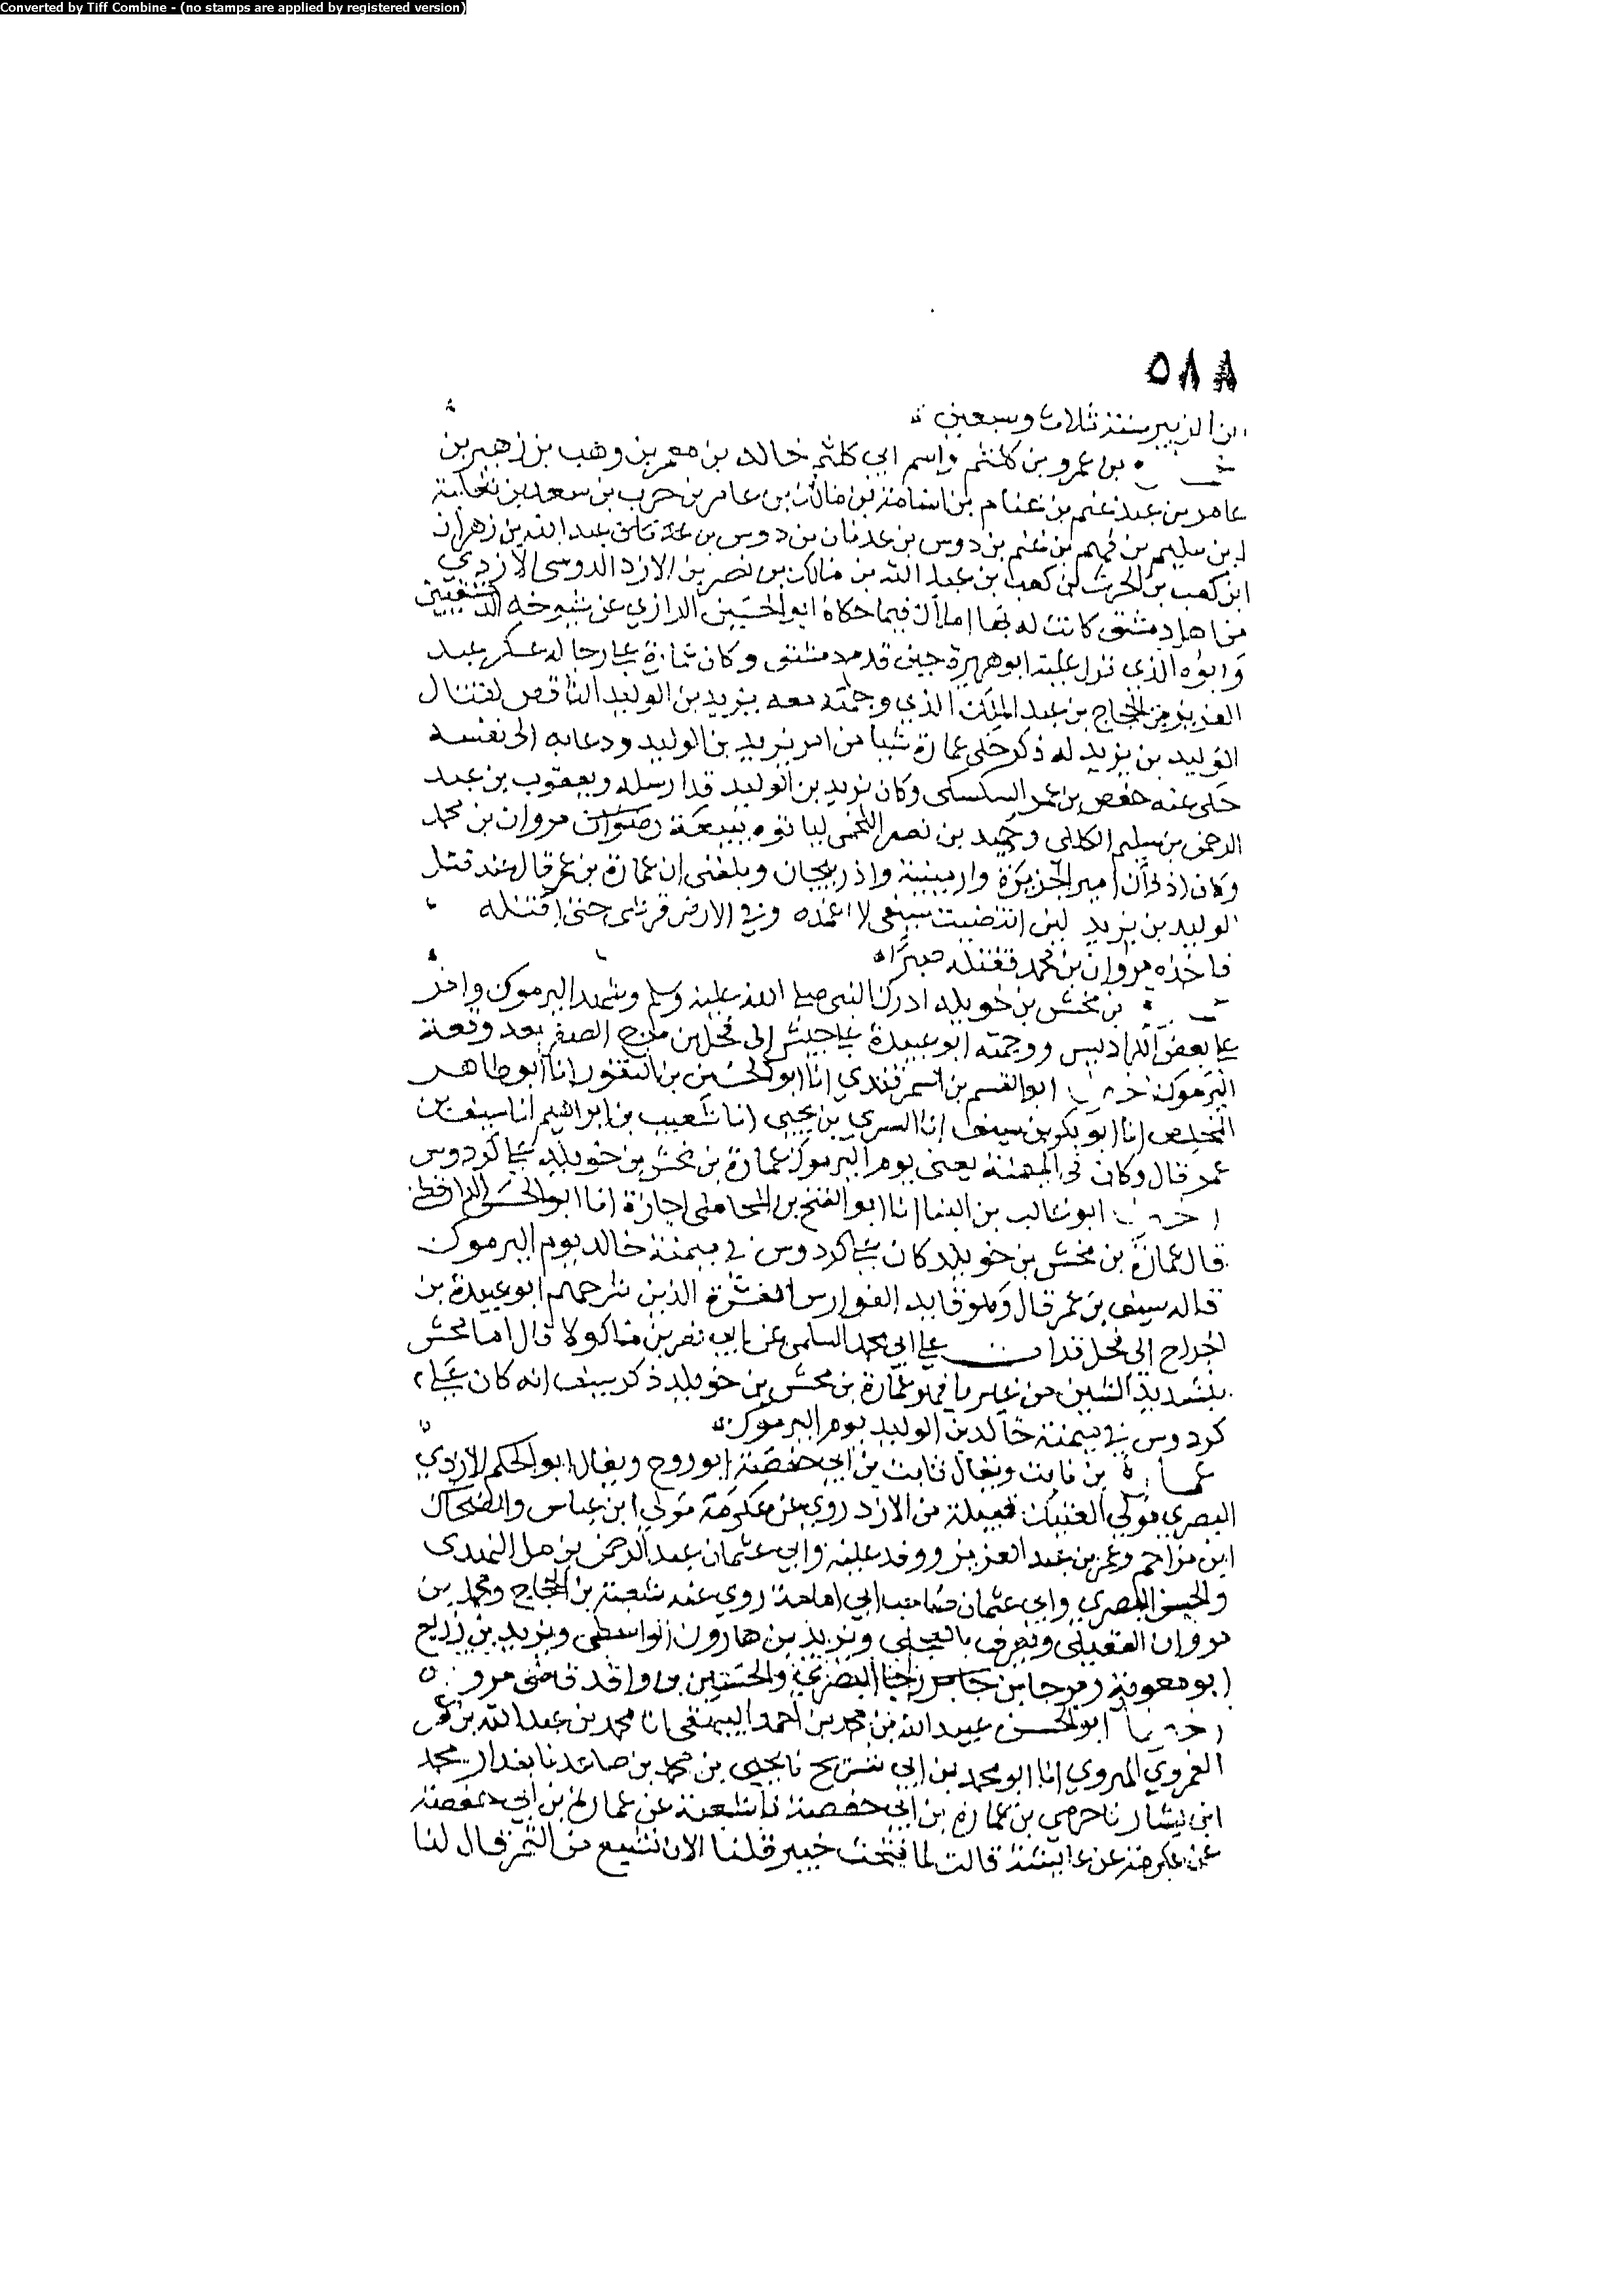 Converted by Tiff Combine - (no stamps are applied by registered version)
٥٨٨
ابن الزبير سنة ثلاث وسبعين
بن عمرو بن كلثم واسم ابي كلثم خالد بن معمر بن وهب بن زهير بن
عامر بن عبد غنم بن غنام بن اسامة بن مالك بن عامر بن حرب بن سعد بن ثعلبة
ابن سليم بن فهم بن غنم بن دوس بن عدثان بن عبد الله بن زهران
ابن كعب بن الحرث بن كعب بن عبد الله بن مالك بن نصر بن الازد الدوسي الازدي
من اهل دمشق كانت له بها املاك فيما حكاه ابو الحسين الرازي عن شيوخه الدمشقيين
وابوه الذي نزل عليه ابو هريرة حين قدم دمشق وكان عمارة على رجاله عسكر عبد
العزيز بن الحجاج بن عبد الملك الذي وجهه معه يزيد بن الوليد الناقص لقتال
الوليد بن يزيد له ذكر حكى عمارة شيا من امر يزيد بن الوليد ودعايه الى نفسه
حكى عنه حفص بن عمر السكسكي وكان يزيد بن الوليد قد ارسله ويعقوب بن عبد
الرحمن بن سليم الكلبي وحميد بن نصر اللخمي لياتوه ببيعة مروان بن محمد
وكان اذ ذاك امير الجزيرة وارمينية واذربيجان وبلغني ان عمارة بن عمر قال عند قتل
الوليد بن يزيد لين انتضيت سيفي لا اغمده وفي الارض قرشي حتى اقتله
فاخذه مروان بن محمد فقتله صبرا
بن مخش بن خويلد ادرك النبي صلى الله عليه وسلم وشهد اليرموك وامر
على بعض الكراديس ووجهه ابو عبيدة على جيش الى فحل من مرج الصفر بعد وقعة
اليرموك ابو القسم بن السمرقندي انا ابو الحسين بن النقور انا ابو طاهر
المخلص انا ابو بكر بن سيف انا السري بن يحيى انا شعيب بن ابراهيم انا سيف بن
عمر قال وكان في الميمنة يعني يوم اليرموك عمارة بن مخش بن خويلد على كردوس
ابو غالب بن البنا انا ابو الفتح بن المحاملي اجازة انا ابو الحسن الدارقطني
قال عمارة بن مخش بن خويلد كان على كردوس في ميمنة خالد يوم اليرموك
قاله سيف بن عمر قال وهو قايد الفوارس العشرة الذين سرحهم ابو عبيدة بن
الجراح الى فحل قرات على ابي محمد السلمي عن ابي نصر بن ماكولا قال اما مخش
بتشديد الشين من غير يا فهو عمارة بن مخش بن خويلد ذكر سيف انه كان على
كردوس في ميمنة خالد بن الوليد يوم اليرموك
عمارة بن نابت ويقال ثابت بن ابي حفصة ابو روح ويقال ابو الحكم الازدي
البصري مولى العتيك قبيلة من الازد روى عن عكرمة مولى ابن عباس والضحاك
ابن مزاحم وعمر بن عبد العزيز ووفد عليه وابي عثمان عبد الرحمن بن مل النهدي
والحسن البصري وابي عثمان صاحب ابي امامة روى عنه شعبة بن الحجاج ومحمد بن
مروان العقيلي ويعرف بالعجلي ويزيد بن هارون الواسطي ويزيد بن زريع
ابو معوية ومرجا بن رجا البصري والحسين بن واقد قاضي مرو
ابو الحسن عبيد الله بن محمد بن احمد البيهقي انا محمد بن عبد الله بن عمر
العمروي الهروي انا ابو محمد بن ابي شريح نا يحيى بن محمد بن صاعد نا بندار محمد
ابن بشار نا حرمي بن عمارة بن ابي حفصة نا شعبة عن عمارة بن ابي حفصة
عن عكرمة عن عايشة قالت لما فتحت خيبر قلنا الان نشبع من التمر قال لنا